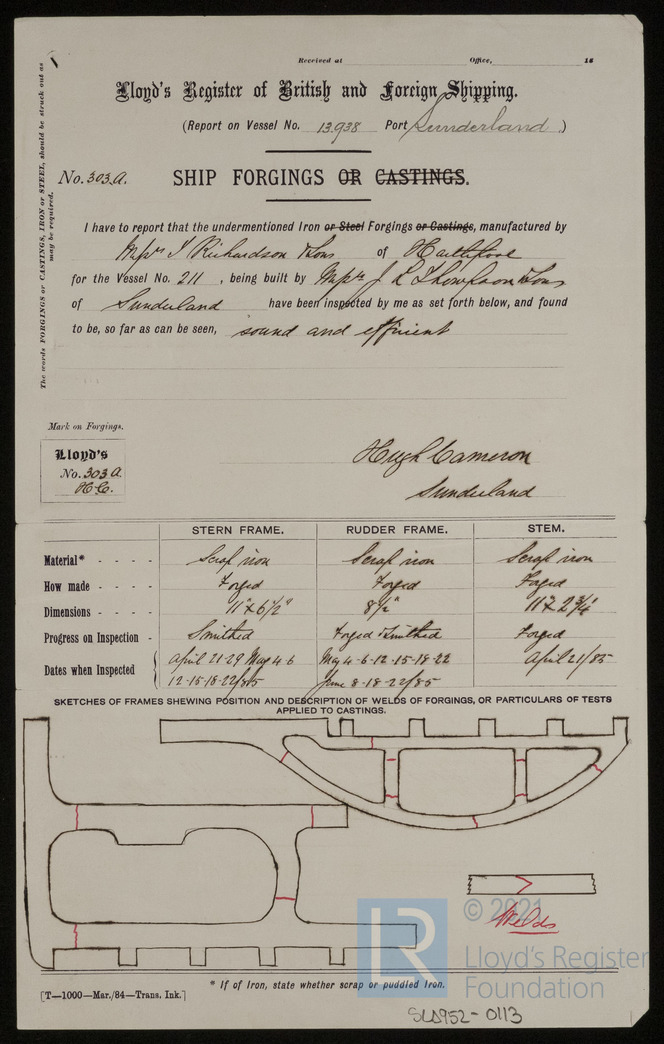 Received at Office, 18
Lloyd's Register of British and Foreign Shipping.
(Report on Vessel No. 13938 Port Sunderland)
No. 303A. SHIP FORGINGS OR CASTINGS.
The words FORGINGS or CASTINGS, IRON or STEEL, should be struck out as
may be required.
I have to report that the undermentioned Iron or Steel Forgings or Castings, manufactured by
Messrs T Richardson & Sons of Hartlepool
for the Vessel No. 211, being built by Messrs J L Thompson & Sons
of Sunderland have been inspected by me as set forth below, and found
to be, so far as can be seen, sound and efficient
Mark on Forgings.
Lloyd's
No. 303A
H.C.
Hugh Cameron
Sunderland
STERN FRAME. RUDDER FRAME. STEM.
Material* - - - - Scrap iron Scrap iron Scrap iron
How made - - - - Forged Forged Forged
Dimensions - - - - 11" x 6½" 8½" 11 x 2¾
Progress on Inspection - Smithed Forged & Smithed Forged
Dates when Inspected April 21-29 May 4-6 May 4-6-12-15-18-22 April 21/85
12-15-18-22/85 June 8-18-22/85
SKETCHES OF FRAMES SHEWING POSITION AND DESCRIPTION OF WELDS OF FORGINGS, OR PARTICULARS OF TESTS
APPLIED TO CASTINGS.
Welds
LR
© 2021
Lloyd's Register
Foundation
* If of Iron, state whether scrap or puddled Iron.
[T—1000—Mar./84—Trans. Ink.]
SLD952-0113